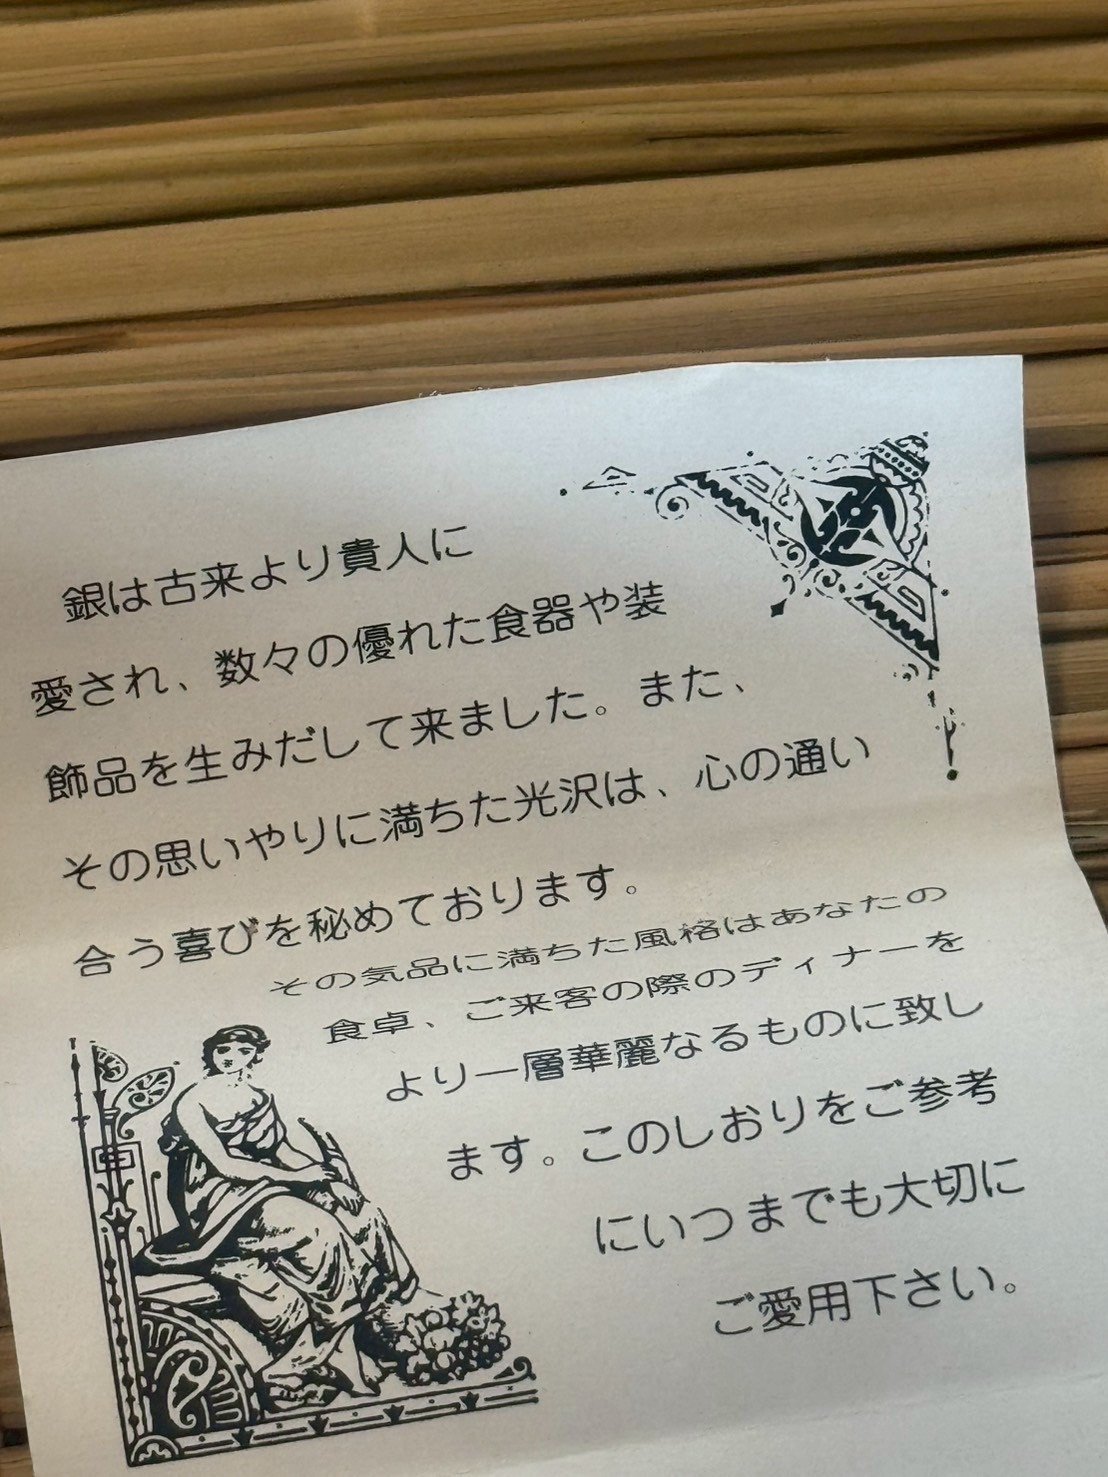 銀は古来より貴人に
愛され、数々の優れた食器や装
飾品を生みだして来ました。また、
その思いやりに満ちた光沢は、心の通い
合う喜びを秘めております。
その気品に満ちた風格はあなたの
食卓、ご来客の際のディナーを
より一層華麗なるものに致し
ます。このしおりをご参考
にいつまでも大切に
ご愛用下さい。